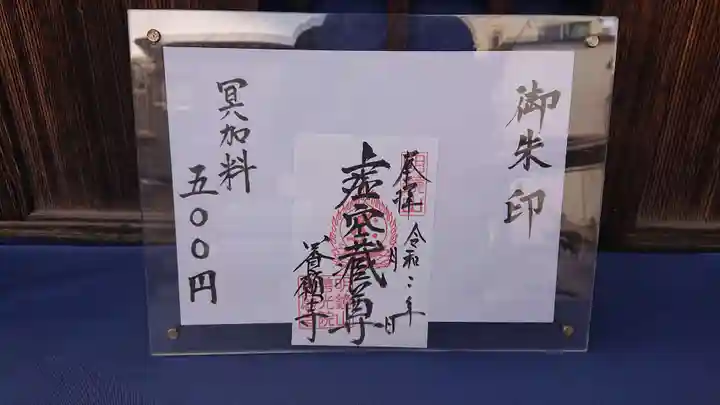 御朱印
奉拝
令和二年
月
日
虚空蔵尊
養願寺
冥加料
五〇〇円